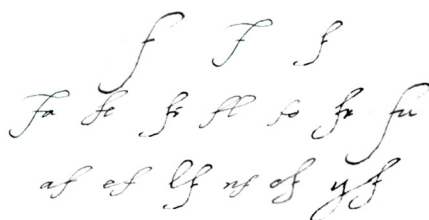 f F f
Fa fe fi fl fo fr fu
af ef lf nf of yf